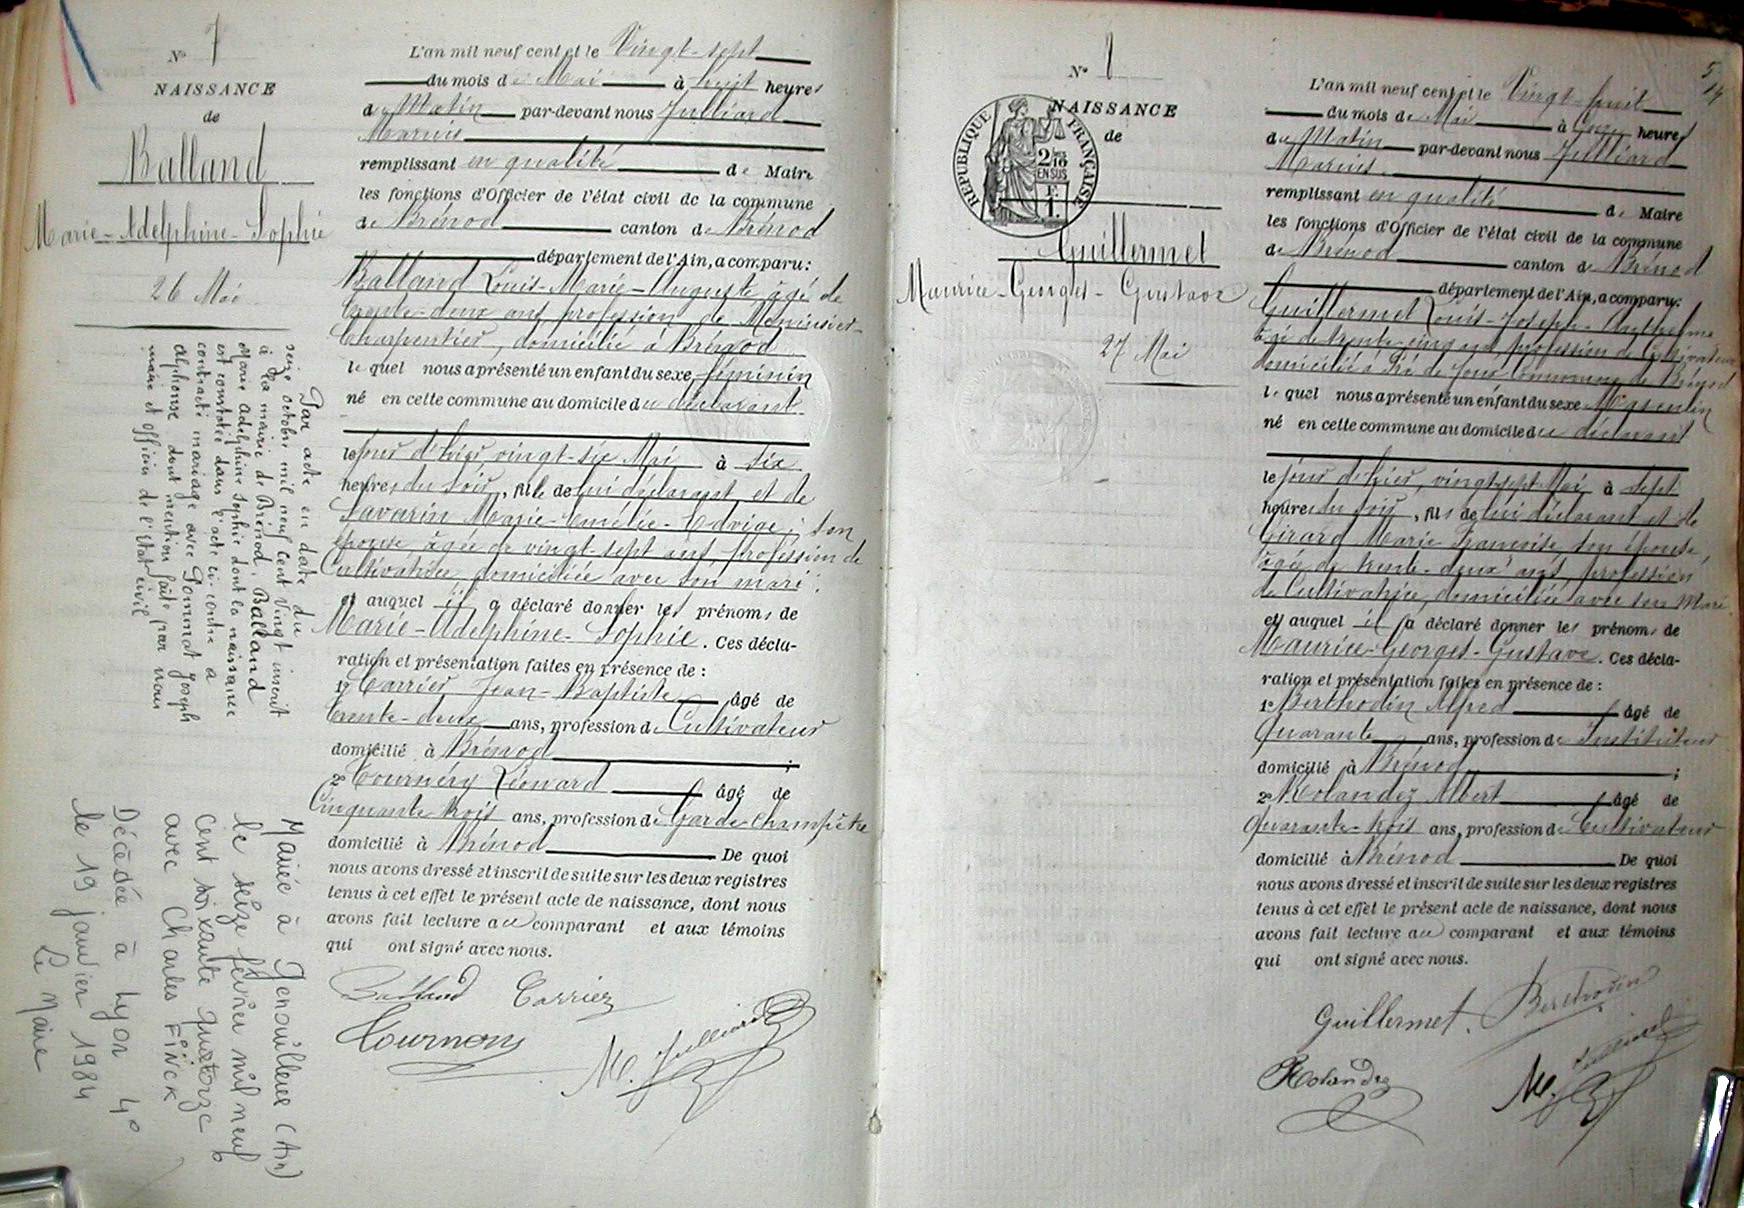 N° 7
NAISSANCE
de
Balland
Marie-Adelphine-Sophie
26 Mai
Par acte en date du
seize octobre mil neuf cent vingt inscrit
à la mairie de Brénod, Balland
Marie Adelphine Sophie dont la naissance
est constatée dans l'acte ci-contre a
contracté mariage avec Pommat Joseph
Alphonse dont mention faite par nous
maire et officier de l'Etat civil
Mariée à Genouilleux (Ain)
le seize février mil neuf
cent soixante quatorze
avec Charles FINCK
Décédée à Lyon 4°
le 19 janvier 1984
Le Maire
L'an mil neuf cent et le Vingt-sept
du mois de Mai à huit heures
du Matin par-devant nous Julliard
Marius
remplissant en qualité de Maire
les fonctions d'Officier de l'état civil de la commune
de Brénod canton de Brénod
département de l'Ain, a comparu:
Balland Louis-Marie-Auguste âgé de
trente-deux ans profession de Menuisier-
Charpentier, domicilié à Brénod
le quel nous a présenté un enfant du sexe féminin
né en cette commune au domicile du déclarant
le jour d'hier, vingt-six Mai à six
heures du soir, fille de lui déclarant et de
Savarin Marie-Emélie-Edvige, son
épouse âgée de vingt-sept ans profession de
Cultivatrice, domiciliée avec son mari;
et auquel il a déclaré donner les prénoms de
Marie-Adelphine-Sophie. Ces décla-
ration et présentation faites en présence de:
1° Carrier Jean-Baptiste âgé de
trente-deux ans, profession de Cultivateur
domicilié à Brénod ;
2° Tournéry Léonard âgé de
Cinquante trois ans, profession de Garde Champêtre
domicilié à Brénod De quoi
nous avons dressé et inscrit de suite sur les deux registres
tenus à cet effet le présent acte de naissance, dont nous
avons fait lecture au comparant et aux témoins
qui ont signé avec nous.
Balland Carrier
Tournery M. Julliard
5
14
N° 8
NAISSANCE
de
RÉPUBLIQUE FRANÇAISE
2/10
EN SUS
1 F.
Guillermet
Maurice-Georges-Gustave
27 Mai
L'an mil neuf cent et le Vingt-huit
du mois de Mai à onze heures
du Matin par-devant nous Julliard
Marius.
remplissant en qualité de Maire
les fonctions d'Officier de l'état civil de la commune
de Brénod canton de Brénod
département de l'Ain, a comparu:
Guillermet Louis-Joseph-Anthelme
âgé de trente-cinq ans, profession de Cultivateur
domicilié à Pré de Joux Commune de Brénod
le quel nous a présenté un enfant du sexe Masculin
né en cette commune au domicile du déclarant
le jour d'hier, vingt-sept Mai à sept
heures du soir, fils de lui déclarant et de
Girard Marie Françoise, son épouse,
âgée de trente-deux ans, profession
de Cultivatrice, domiciliée avec son Mari.
et auquel il a déclaré donner les prénoms de
Maurice-Georges-Gustave. Ces décla-
ration et présentation faites en présence de:
1° Berthodin Alfred âgé de
Quarante ans, profession de Instituteur
domicilié à Brénod ;
2° Rolandez Albert âgé de
Quarante-trois ans, profession de Cultivateur
domicilié à Brénod De quoi
nous avons dressé et inscrit de suite sur les deux registres
tenus à cet effet le présent acte de naissance, dont nous
avons fait lecture au comparant et aux témoins
qui ont signé avec nous.
Guillermet.
Rolandez M. Julliard